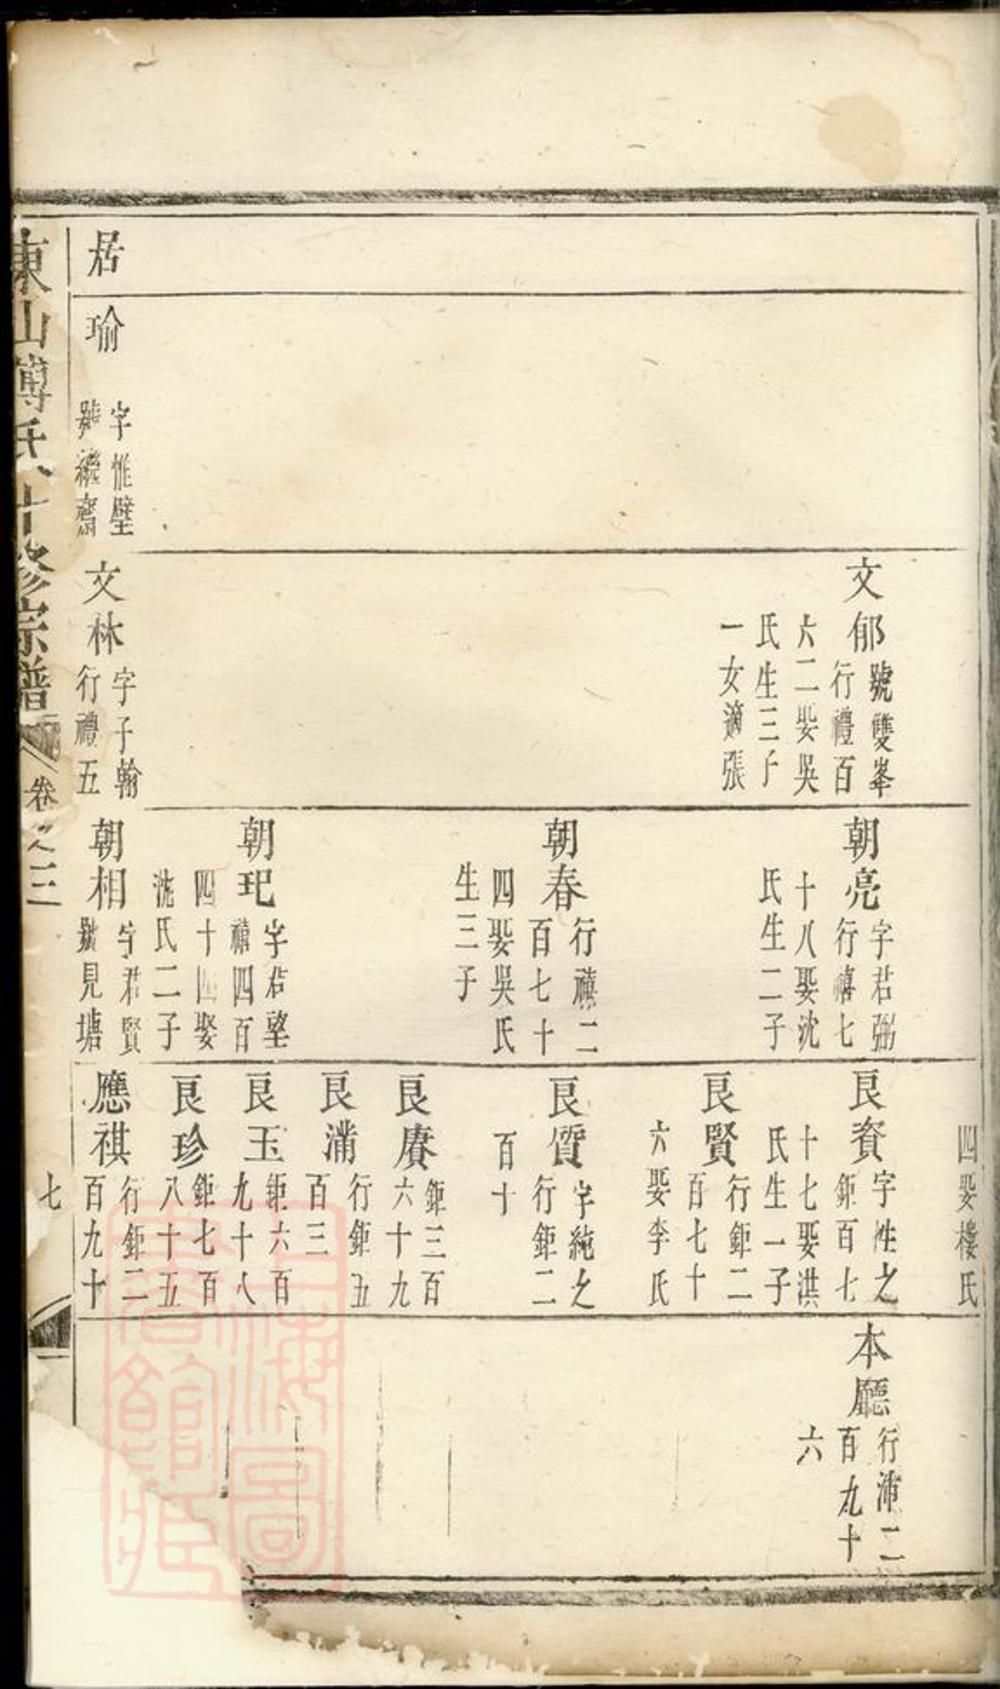 居
瑜
字惟璧
號
齋
文郁
號雙峯
行禮百
六二娶吳
氏生三子
一女適張
文林
字子翰
行禮五
朝亮
字君弼
行禧七
十八娶沈
氏生二子
朝春
行禧二
百七十
四娶吳氏
生三子
朝玘
字君望
禧四百
四十四娶
沈氏二子
朝相
字君賢
號見塘
四娶樓氏
良資
字性之
鉅百七
十七娶洪
氏生一子
良賢
行鉅二
百七十
六娶李氏
良質
字純之
行鉅二
百十
良賡
鉅三百
六十九
良溝
行鉅五
百三
良玉
鉅六百
九十八
良珍
鉅七百
八十五
應祺
行鉅二
百九十
本廳
行沛二
百九十
六
東山傅氏十修宗譜
卷之三
七
上海圖書館藏